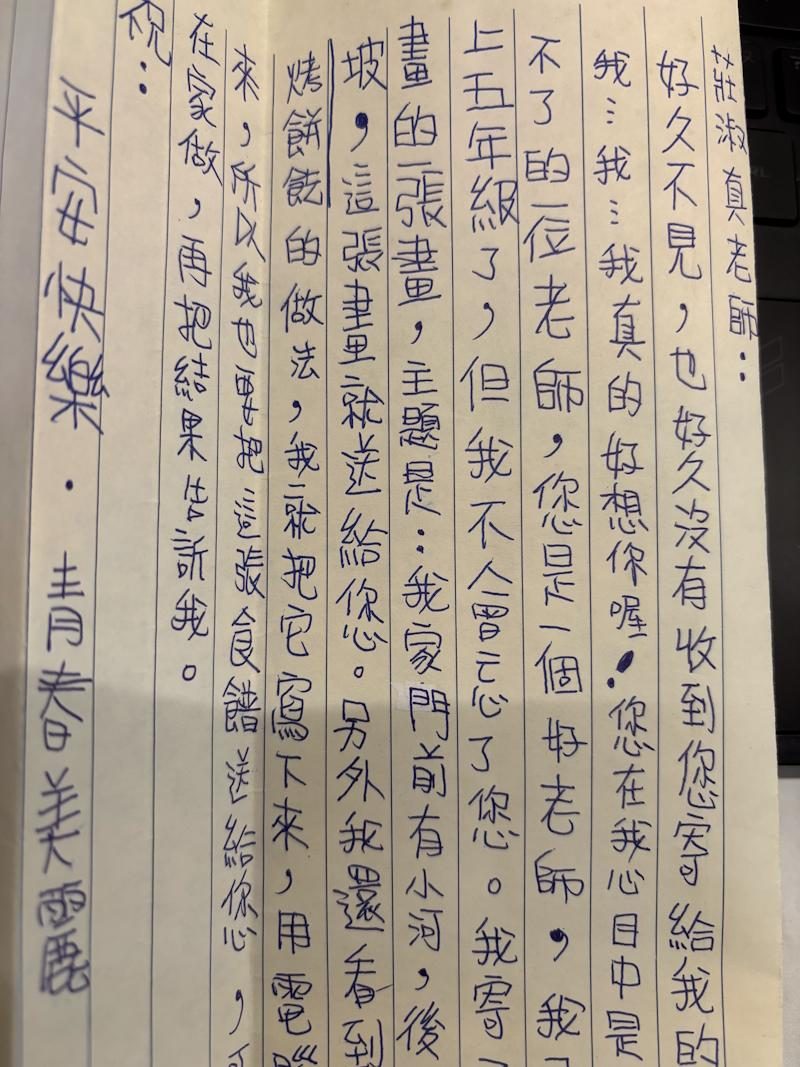 莊淑真老師：
好久不見，也好久沒有收到您寄給我的
我…我…我真的好想你喔！您在我心目中是
不了的一位老師，您是一個好老師，我
上五年級了，但我不會忘了您。我寄
畫的一張畫，主題是：我家門前有小河，後
坡，這張畫就送給您。另外我還看到
烤餅的做法，我就把它寫下來，用電腦
來，所以我也要把這張食譜送給您，
在家做，再把結果告訴我。
祝：
平安快樂．青春美麗